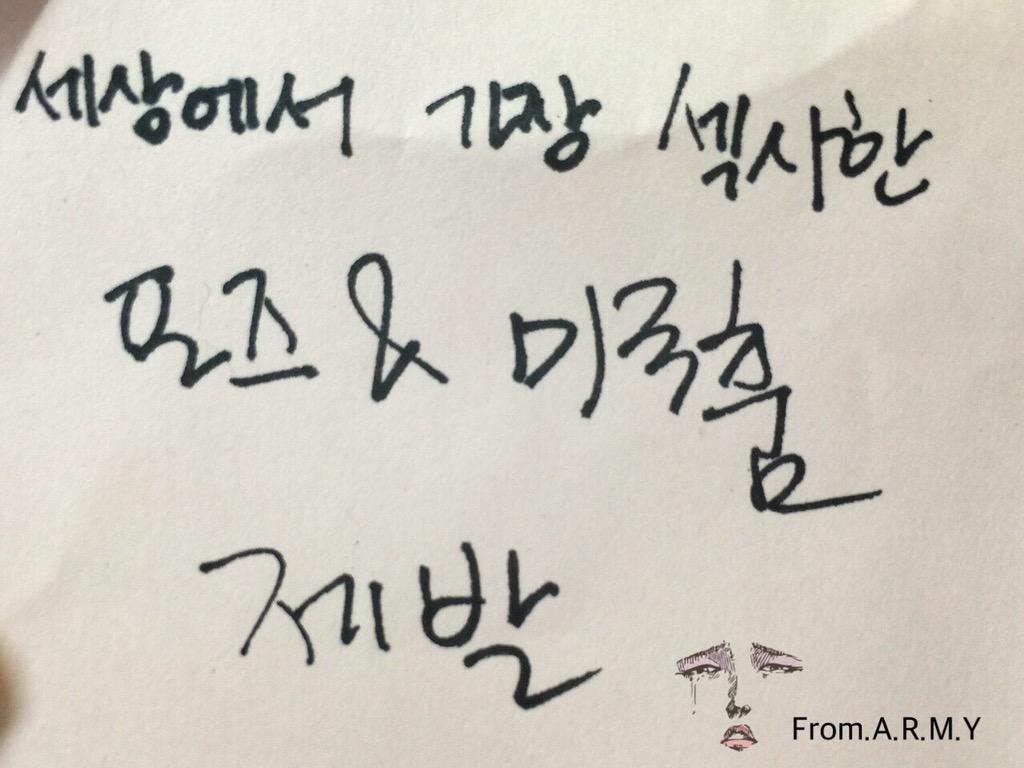 세상에서 가장 섹사한
포즈 & 미국춤
제발
From.A.R.M.Y